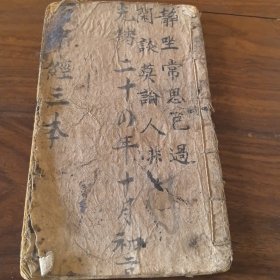 靜坐常思己過
閑談莫論人非
光緒二十四年十月初二
經三本